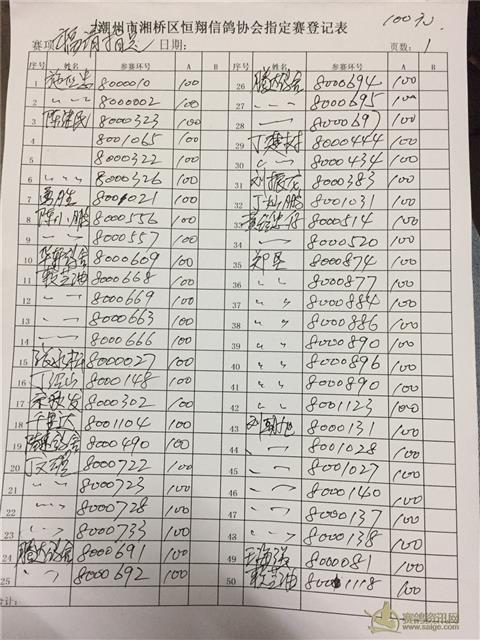 100元
潮州市湘桥区恒翔信鸽协会指定赛登记表
赛项 福清指定 日期: 页数: 1
序号 姓名 参赛环号 A B 序号 姓名 参赛环号 A B
1 8000010 100 26 8000694 100
2 〃 〃 8000002 100 27 〃 〃 8000695 100
3 陈建民 8000323 100 28 〃 8000697 100
4 8001065 100 29 丁楚树 8000444 100
5 8000322 100 30 〃 8000434 100
6 〃 〃 8000326 100 31 刘振龙 8000383 100
7 8001021 100 32 丁灿鹏 8001031 100
8 陈小鹏 8000556 100 33 8000514 100
9 〃 8000557 100 34 〃 8000520 100
10 8000609 100 35 郑坚 8000874 100
11 8000668 100 36 〃 〃 8000877 100
12 〃 〃 8000669 100 37 〃 〃 8000884 100
13 〃 〃 8000663 100 38 〃 〃 8000886 100
14 〃 8000666 100 39 〃 〃 8000890 100
15 8000027 100 40 〃 〃 8000896 100
16 8000148 100 41 〃 〃 8000890 100
17 8000302 100 42 〃 〃 8001123 100
18 8001104 100 43 8000131 100
19 8000490 100 44 〃 8001028 100
20 8000722 100 45 〃 〃 8001027 100
21 〃 〃 8000723 100 46 〃 〃 8000140 100
22 〃 〃 8000728 100 47 〃 〃 8000137 100
23 〃 〃 8000733 100 48 〃 〃 8000138 100
24 8000691 100 49 8000081 100
25 〃 〃 8000692 100 50 8001118 100
合计:
赛鸽资讯网
www.saige.com